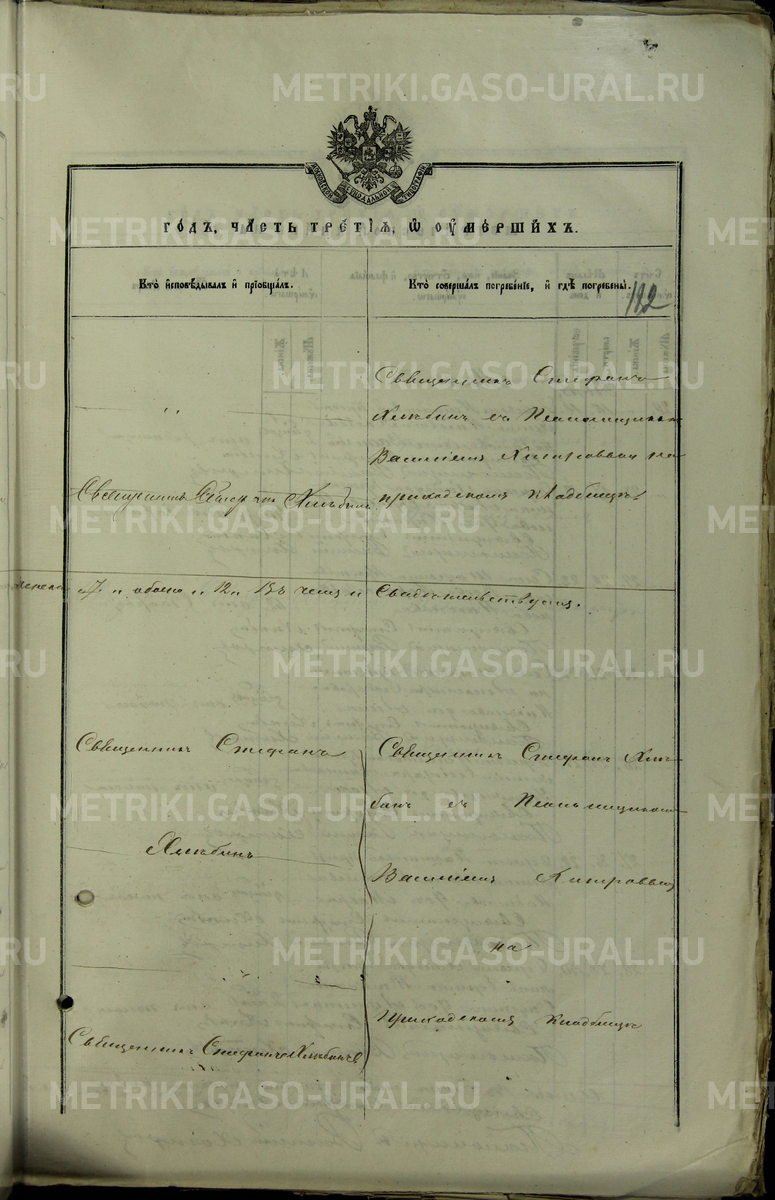 METRIKI.GASO-URAL.RU
МОСКОВСКОЙ СѴНОДАЛЬНОЙ ТИПОГРАФІИ
го́дъ, ча́сть тре́тїѧ, ѡ҆ ᲂу҆ме́ршихъ.
Кто̀ и҆сповѣ́дывалъ и҆ прїѡбща́лъ.
Кто̀ соверша́лъ погребе́нїе, и҆ гдѣ̀ погребены̀.
182
Священникъ Стефанъ
Хлѣбинъ съ Псаломщикомъ
Василіемъ Хитровымъ на
приходскомъ кладбищѣ
Священникъ Стефанъ Хлѣбинъ
7 " обоего " 12 "
Свидѣтельствуемъ.
Священникъ Стефанъ
Хлѣбинъ
Священникъ Стефанъ Хлѣ-
бинъ съ Псаломщикомъ
Василіемъ Хитровымъ
на
приходскомъ кладбищѣ
Священникъ Стефанъ Хлѣбинъ